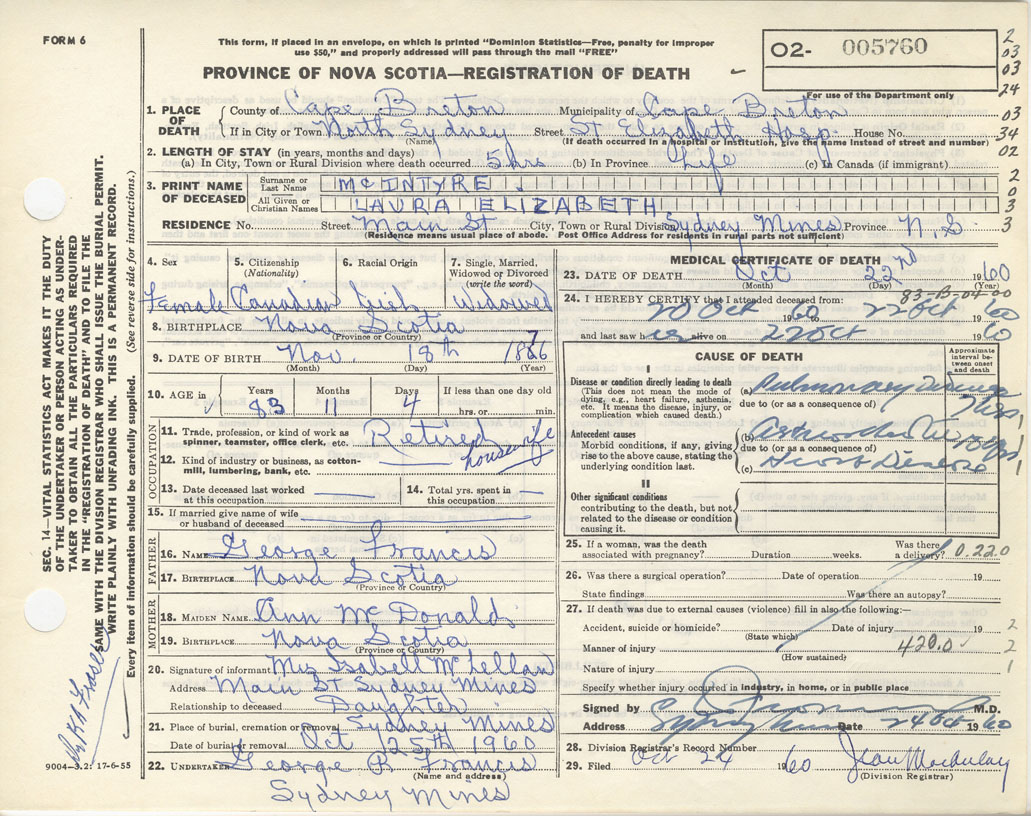 FORM 6
This form, if placed in an envelope, on which is printed "Dominion Statistics—Free, penalty for improper
use $50," and properly addressed will pass through the mail "FREE"
PROVINCE OF NOVA SCOTIA—REGISTRATION OF DEATH
02- 005760
For use of the Department only
2
03
03
24
03
34
02
2
0
3
3
1. PLACE OF DEATH County of Cape Breton Municipality of Cape Breton
If in City or Town North Sydney Street St Elizabeth Hosp. House No.
(Name) (If death occurred in a hospital or institution, give the name instead of street and number)
2. LENGTH OF STAY (in years, months and days)
(a) In City, Town or Rural Division where death occurred 5 hrs (b) In Province Life (c) In Canada (if immigrant)
3. PRINT NAME OF DECEASED Surname or Last Name McINTYRE
All Given or Christian Names LAURA ELIZABETH
RESIDENCE No. Street Main St City, Town or Rural Division Sydney Mines Province N.S
(Residence means usual place of abode. Post Office Address for residents in rural parts not sufficient)
4. Sex 5. Citizenship (Nationality) 6. Racial Origin 7. Single, Married, Widowed or Divorced (write the word)
Female Canadian Irish Widowed
8. BIRTHPLACE Nova Scotia
(Province or Country)
9. DATE OF BIRTH Nov. 18th 18 6 7
(Month) (Day) (Year)
10. AGE in Years Months Days If less than one day old
83 11 4 hrs. or min.
OCCUPATION
11. Trade, profession, or kind of work as spinner, teamster, office clerk, etc. Retired
housewife
12. Kind of industry or business, as cotton-mill, lumbering, bank, etc.
13. Date deceased last worked at this occupation 14. Total yrs. spent in this occupation
15. If married give name of wife or husband of deceased
FATHER
16. NAME George Francis
17. BIRTHPLACE Nova Scotia
(Province or Country)
MOTHER
18. MAIDEN NAME Ann McDonald
19. BIRTHPLACE Nova Scotia
(Province or Country)
20. Signature of informant Mrs Isabell McLellan
Address Main St Sydney Mines
Relationship to deceased Daughter
21. Place of burial, cremation or removal Sydney Mines
Date of burial or removal Oct 25th 1960
22. UNDERTAKER George P. Francis
(Name and address)
Sydney Mines
MEDICAL CERTIFICATE OF DEATH
23. DATE OF DEATH Oct 22nd 1960
(Month) (Day) (Year)
83-B-04-00
24. I HEREBY CERTIFY that I attended deceased from:
20 Oct 1960 22 Oct 1960
and last saw her alive on 22 Oct 1960
CAUSE OF DEATH
Approximate interval between onset and death
I
Disease or condition directly leading to death
(This does not mean the mode of dying, e.g., heart failure, asthenia, etc. It means the disease, injury, or complication which caused death.)
(a) Pulmonary
due to (or as a consequence of)
Antecedent causes
Morbid conditions, if any, giving rise to the above cause, stating the underlying condition last.
(b)
due to (or as a consequence of)
(c) Heart Disease
II
Other significant conditions
contributing to the death, but not related to the disease or condition causing it.
25. If a woman, was the death associated with pregnancy? Duration weeks. Was there a delivery? 0.220
26. Was there a surgical operation? Date of operation 19
State findings Was there an autopsy?
27. If death was due to external causes (violence) fill in also the following:—
Accident, suicide or homicide? Date of injury 19
(State which)
Manner of injury 420.0
(How sustained)
Nature of injury
2
2
1
Specify whether injury occurred in industry, in home, or in public place
Signed by M.D.
Address Sydney Mines Date 24 Oct 1960
28. Division Registrar's Record Number
29. Filed Oct 24 1960 Jean Macaulay
(Division Registrar)
SEC. 14—VITAL STATISTICS ACT MAKES IT THE DUTY
OF THE UNDERTAKER OR PERSON ACTING AS UNDER-
TAKER TO OBTAIN ALL THE PARTICULARS REQUIRED
IN THE "REGISTRATION OF DEATH" AND TO FILE THE
SAME WITH THE DIVISION REGISTRAR WHO SHALL ISSUE THE BURIAL PERMIT.
WRITE PLAINLY WITH UNFADING INK. THIS IS A PERMANENT RECORD.
Every item of information should be carefully supplied. (See reverse side for instructions.)
9004-3.2: 17-6-55